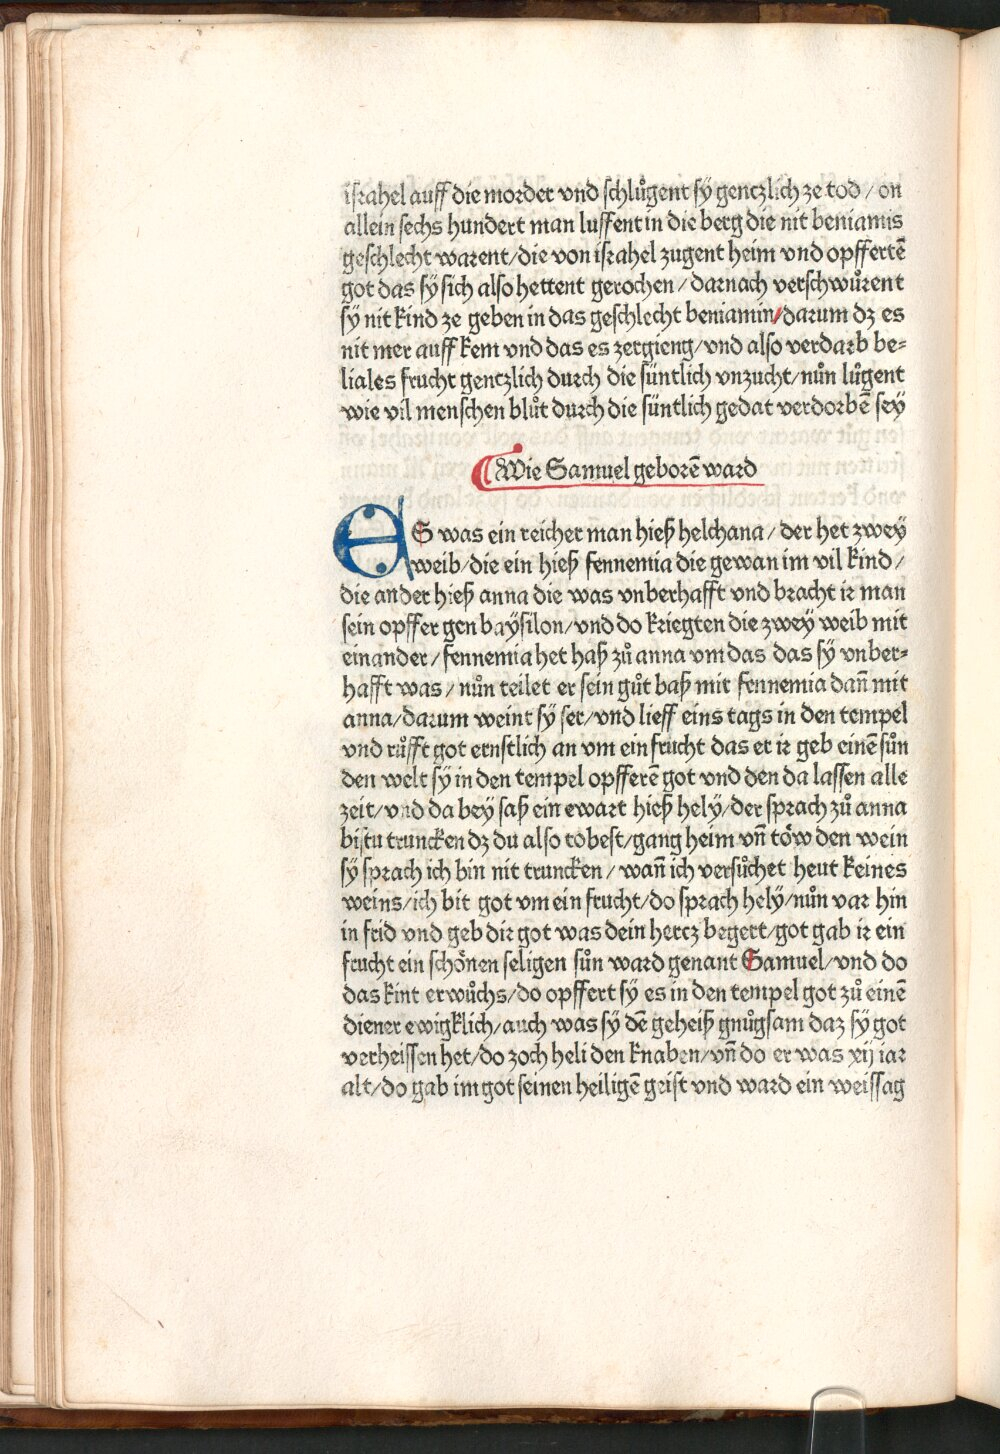 israhel auff die morder vnd schlůgent sÿ genczlich ze tod / on
allein sechs hundert man luffent in die berg die nit beniamis
geschlecht warent / die von israhel zugent heim vnd opffertē
got das sÿ sich also hettent gerochen / darnach verschwůrent
sÿ nit kind ze geben in das geschlecht beniamin / darum dz es
nit mer auff kem vnd das es zergieng / vnd also verdarb be⸗
liales frucht genczlich durch die süntlich vnzucht / nůn lůgent
wie vil menschen blůt durch die süntlich gedat verdorbē seÿ
Wie Samuel geborē ward
ES was ein reicher man hieß helchana / der het zweÿ
weib / die ein hieß fennemia die gewan im vil kind /
die ander hieß anna die was vnberhafft vnd bracht ir man
sein opffer gen baÿsilon / vnd do kriegten die zweÿ weib mit
einander / fennemia het haß zů anna vm das das sÿ vnber⸗
hafft was / nůn teilet er sein gůt baß mit fennemia dañ mit
anna / darum weint sÿ ser / vnd lieff eins tags in den tempel
vnd růfft got ernstlich an vm ein frucht das er ir geb einē sůn
den welt sÿ in den tempel opfferē got vnd den da lassen alle
zeit / vnd da beÿ saß ein ewart hieß helÿ / der sprach zů anna
bistu truncken dz du also tobest / gang heim vñ töw den wein
sÿ sprach ich bin nit truncken / wañ ich versůchet heut keines
weins / ich bit got vm ein frucht / do sprach helÿ / nůn var hin
in frid vnd geb dir got was dein hercz begert / got gab ir ein
frucht ein schönen seligen sůn ward genant Samuel / vnd do
das kint erwůchs / do opffert sÿ es in den tempel got zů einē
diener ewigklich / auch was sÿ dē geheiß gnůgsam daz sÿ got
verheissen het / do zoch heli den knaben / vñ do er was xij iar
alt / do gab im got seinen heiligē geist vnd ward ein weissag